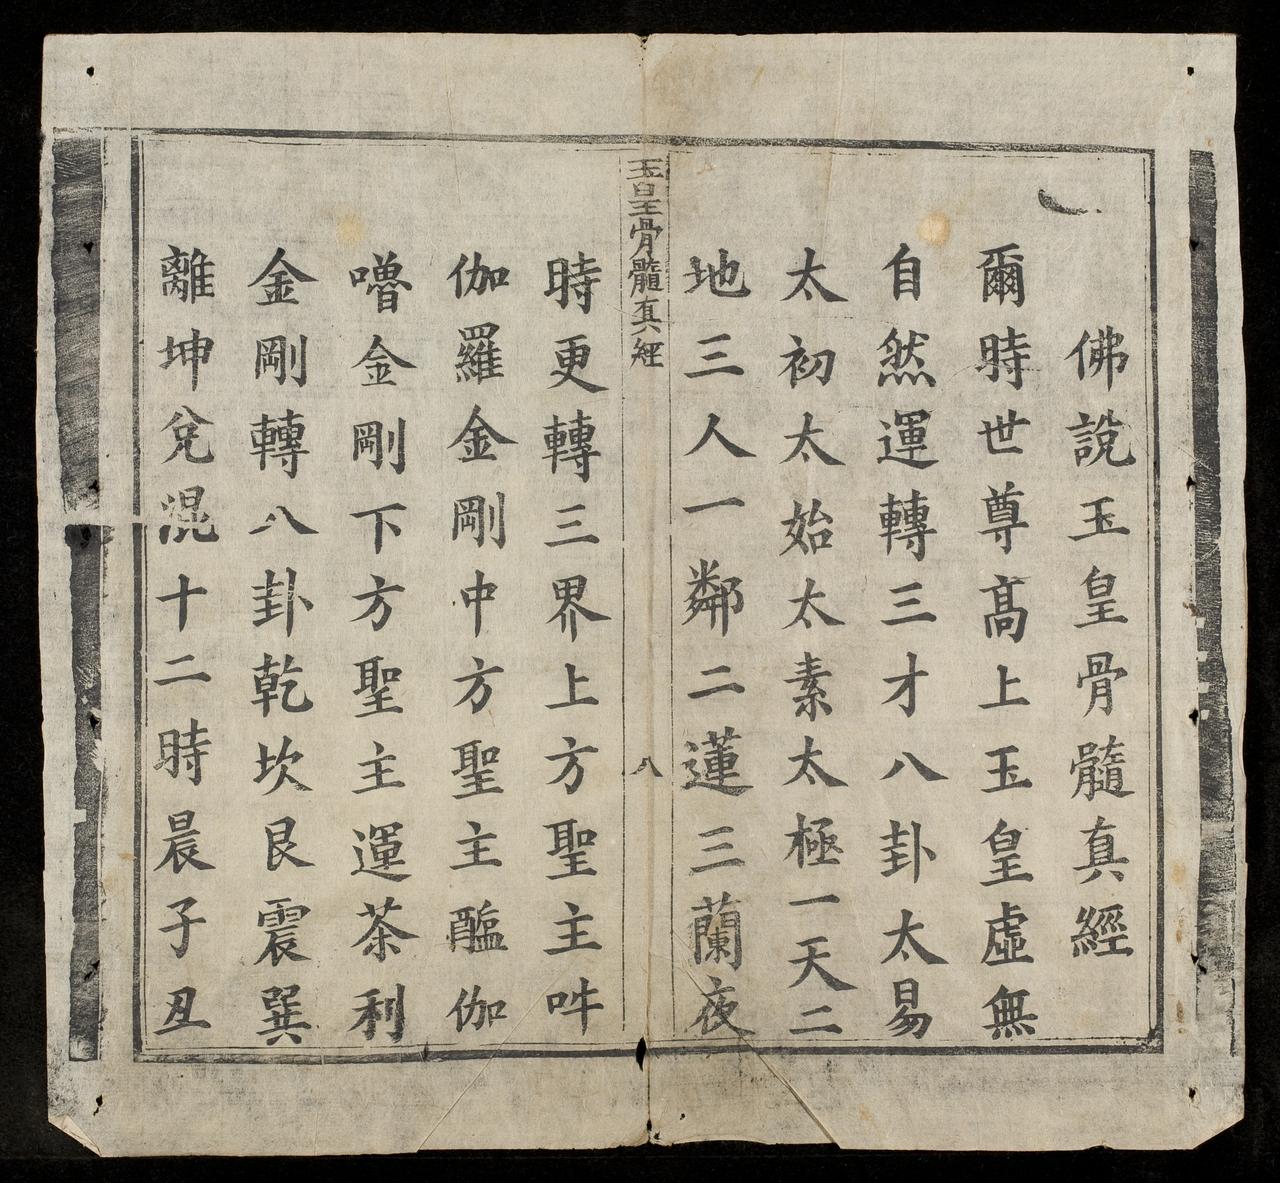 佛說玉皇骨髓真經
爾時世尊髙上玉皇虛無
自然運轉三才八卦太易
太初太始太素太極一天二
地三人一鄰二蓮三蘭夜
玉皇骨髓真經
八
時更轉三界上方聖主吽
伽羅金剛中方聖主醯伽
嚕金剛下方聖主運茶利
金剛轉八卦乾坎艮震巽
離坤兌混十二時晨子丑